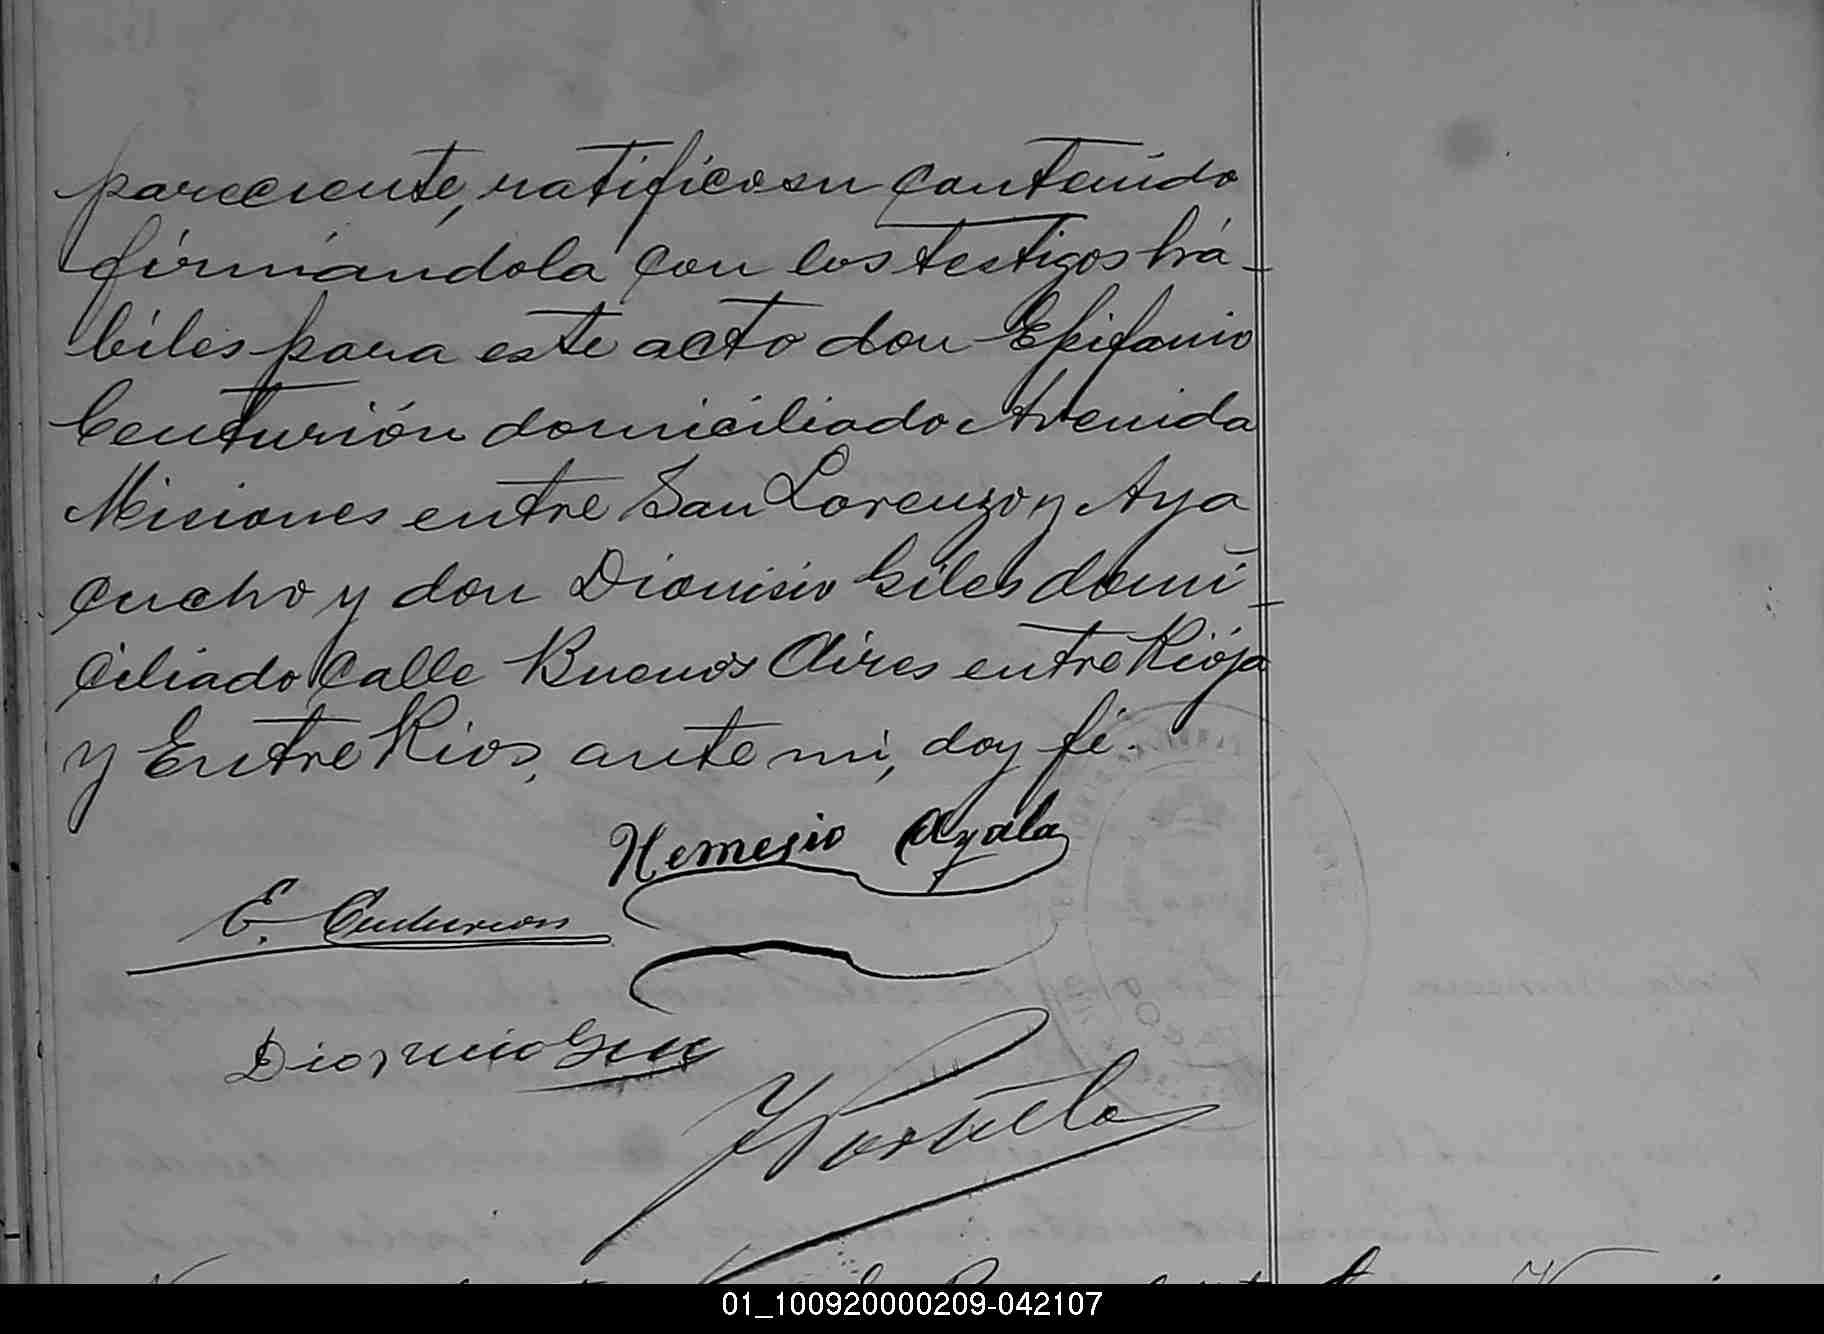 pareciente, ratificó su contenido
firmándola con los testigos há-
biles para este acto don Epifanio
Centurión domiciliado Avenida
Misiones entre San Lorenzo y Aya
cucho y don Dionisio Giles domi-
ciliado calle Buenos Aires entre Rioja
y Entre Rios, ante mi, doy fé.
Nemesio Ayala
E. Centurion
Dionicio
01_100920000209-042107